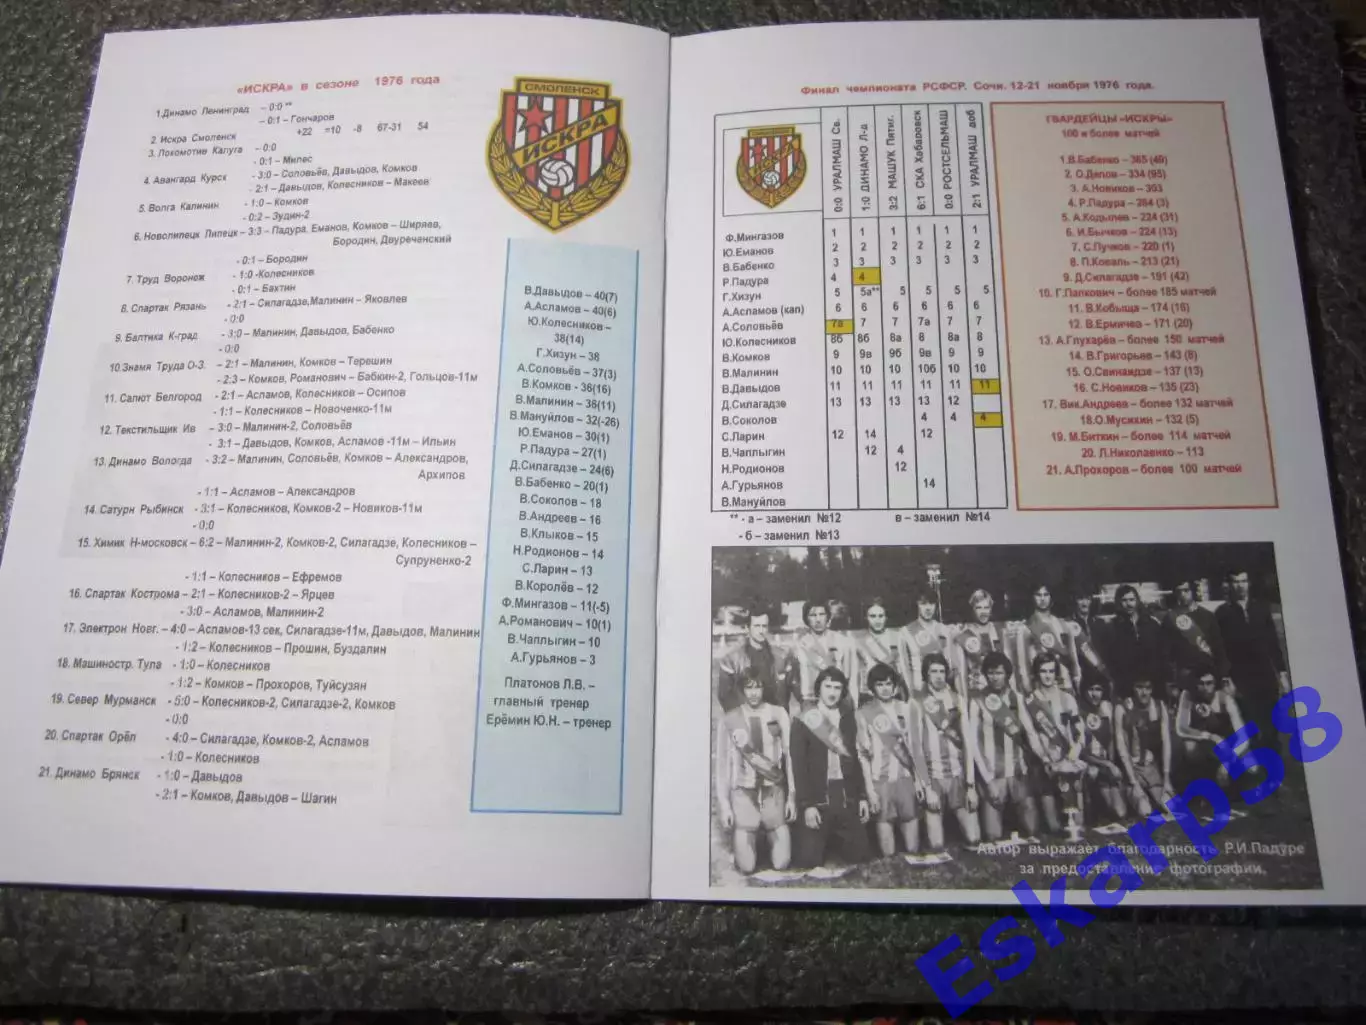 «ИСКРА» в сезоне 1976 года
1.Динамо Ленинград – 0:0 **
– 0:1 – Гончаров
2. Искра Смоленск +22 =10 -8 67-31 54
3. Локомотив Калуга – 0:0
- 0:1 – Милес
4. Авангард Курск - 3:0 – Соловьёв, Давыдов, Комков
- 2:1 – Давыдов, Колесников – Макеев
5. Волга Калинин - 1:0 – Комков
- 0:2 – Зудин-2
6. Новолипецк Липецк – 3:3 – Падура, Еманов, Комков – Ширяев,
Бородин, Двуреченский
- 0:1 – Бородин
7. Труд Воронеж - 1:0 -Колесников
- 0:1 – Бахтин
8. Спартак Рязань - 2:1 – Силагадзе,Малинин – Яковлев
- 0:0
9. Балтика К-град - 3:0 – Малинин, Давыдов, Бабенко
- 0:0
10.Знамя Труда О-З. - 2:1 – Малинин, Комков – Терешин
- 2:3 – Комков, Романович – Бабкин-2, Гольцов-11м
11. Салют Белгород - 2:1 – Асламов, Колесников – Осипов
- 1:1 – Колесников – Новоченко-11м
12. Текстильщик Ив - 3:0 – Малинин-2, Соловьёв
- 3:1 – Давыдов, Комков, Асламов -11м – Ильин
13. Динамо Вологда - 3:2 – Малинин, Соловьёв, Комков – Александров,
Архипов
- 1:1 – Асламов – Александров
14. Сатурн Рыбинск - 3:1 – Колесников, Комков-2 – Новиков-11м
- 0:0
15. Химик Н-московск – 6:2 – Малинин-2, Комков-2, Силагадзе, Колесников –
Супруненко-2
- 1:1 – Колесников – Ефремов
16. Спартак Кострома – 2:1 – Колесников-2 – Ярцев
- 3:0 – Асламов, Малинин-2
17. Электрон Новг. – 4:0 – Асламов-13 сек, Силагадзе-11м, Давыдов, Малинин
- 1:2 – Колесников – Прошин, Буздалин
18. Машиностр. Тула - 1:0 – Колесников
- 1:2 – Комков – Прохоров, Туйсузян
19. Север Мурманск - 5:0 – Колесников-2, Силагадзе-2, Комков
- 0:0
20. Спартак Орёл - 4:0 – Силагадзе, Комков-2, Асламов
- 1:0 – Колесников
21. Динамо Брянск - 1:0 – Давыдов
- 2:1 – Комков, Давыдов – Шагин
СМОЛЕНСК
ИСКРА
В.Давыдов – 40(7)
А.Асламов – 40(6)
Ю.Колесников –
38(14)
Г.Хизун – 38
А.Соловьёв – 37(3)
В.Комков – 36(16)
В.Малинин – 36(11)
В.Мануйлов – 32(-26)
Ю.Еманов – 30(1)
Р.Падура – 27(1)
Д.Силагадзе – 24(6)
В.Бабенко – 20(1)
В.Соколов – 18
В.Андреев – 16
В.Клыков – 15
Н.Родионов – 14
С.Ларин – 13
В.Королёв – 12
Ф.Мингазов – 11(-5)
А.Романович – 10(1)
В.Чаплыгин – 10
А.Гурьянов – 3
Платонов Л.В. –
главный тренер
Ерёмин Ю.Н. – тренер
Финал чемпионата РСФСР. Сочи. 12-21 ноября 1976 года.
СМОЛЕНСК
ИСКРА
0:0 УРАЛМАШ Св.
1:0 ДИНАМО Л-д
3:2 МАШУК Пятиг.
6:1 СКА Хабаровск
0:0 РОСТСЕЛЬМАШ
2:1 УРАЛМАШ доб
Ф.Мингазов 1 1 1 1 1 1
Ю.Еманов 2 2 2 2 2 2
В.Бабенко 3 3 3 3 3 3
Р.Падура 4 4
Г.Хизун 5 5а** 5 5 5 5
А.Асламов (кап) 6 6 6 6 6 6
А.Соловьёв 7а 7 7 7а 7 7
Ю.Колесников 8б 8б 8а 8 8а 8
В.Комков 9 9в 9б 9в 9 9
В.Малинин 10 10 10 10б 10 10
В.Давыдов 11 11 11 11 11 11
Д.Силагадзе 13 13 13 13 12
В.Соколов 4 4 4
С.Ларин 12 14 12
В.Чаплыгин 12 4
Н.Родионов 12
А.Гурьянов 14
В.Мануйлов
** - а – заменил №12 в – заменил №14
- б – заменил №13
ГВАРДЕЙЦЫ «ИСКРЫ»
100 и более матчей
1.В.Бабенко – 365 (49)
2. О.Делов – 334 (95)
3. А.Новиков – 303
4. Р.Падура – 284 (3)
5. А.Кодылев – 224 (31)
6. И.Бычков – 224 (13)
7. С.Лучков – 220 (1)
8. П.Коваль – 213 (21)
9. Д.Силагадзе – 191 (42)
10. Г.Лапкович – более 185 матчей
11. В.Кобыща – 174 (16)
12. В.Ермичев – 171 (20)
13. А.Глухарёв – более 150 матчей
14. В.Григорьев – 143 (8)
15. О.Свинаидзе – 137 (13)
16. С.Новиков – 135 (23)
17. Вик.Андреев – более 132 матчей
18.О.Мусихин – 132 (5)
19. М.Биткин – более 114 матчей
20. Л.Николаенко – 113
21. А.Прохоров – более 100 матчей
Автор выражает благодарность Р.И.Падуре
за предоставление фотографии.
Eskarp58